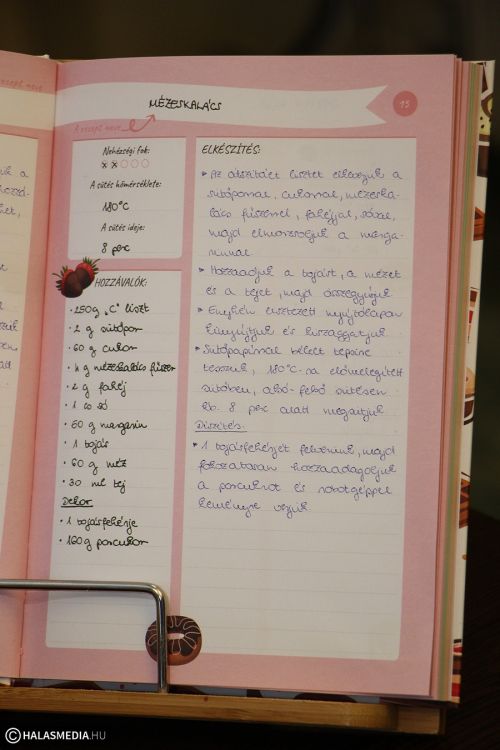 A recept neve
MÉZESKALÁCS
15
A recept neve
Nehézségi fok:
A sütés hőmérséklete:
180°C
A sütés ideje:
8 perc
HOZZÁVALÓK:
• 250g „C" liszt
• 2 g sütőpor
• 60 g cukor
• 4 g mézeskalács fűszer
• 2 g fahéj
• 1 cs só
• 60 g margarin
• 1 tojás
• 60 g méz
• 30 ml tej
Dekor
• 1 tojásfehérje
• 160 g porcukor
ELKÉSZÍTÉS:
Az átszitált lisztet elkeverjük a
sütőporral, cukorral, mézeska-
lács fűszerrel, fahéjjal, sóval,
majd elmorzsoljuk a marga-
rinnal.
Hozzáadjuk a tojást, a mézet
és a tejet, majd összegyúrjuk
Enyhén lisztezett nyújtólapon
kinyújtjuk és kiszaggatjuk
Sütőpapírral bélelt tepsire
tesszük, 180°C-ra előmelegített
sütőben, alsó-felső sütésen
kb. 8 perc alatt megsütjük
Díszítés:
1 tojásfehérjét felverünk, majd
fokozatosan hozzáadagoljuk
a porcukrot és robotgéppel
keményre verjük
HALASMEDIA.HU